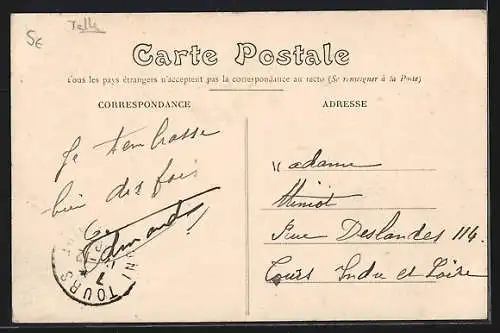 5€
Carte Postale
Tous les pays étrangers n'acceptent pas la correspondance au recto (Se renseigner à la Poste)
CORRESPONDANCE
ADRESSE
Je t'embrasse
bien des fois
Edmond
Madame
Miniot
Rue Deslandes 114
Tours Indre et Loire
TOURS